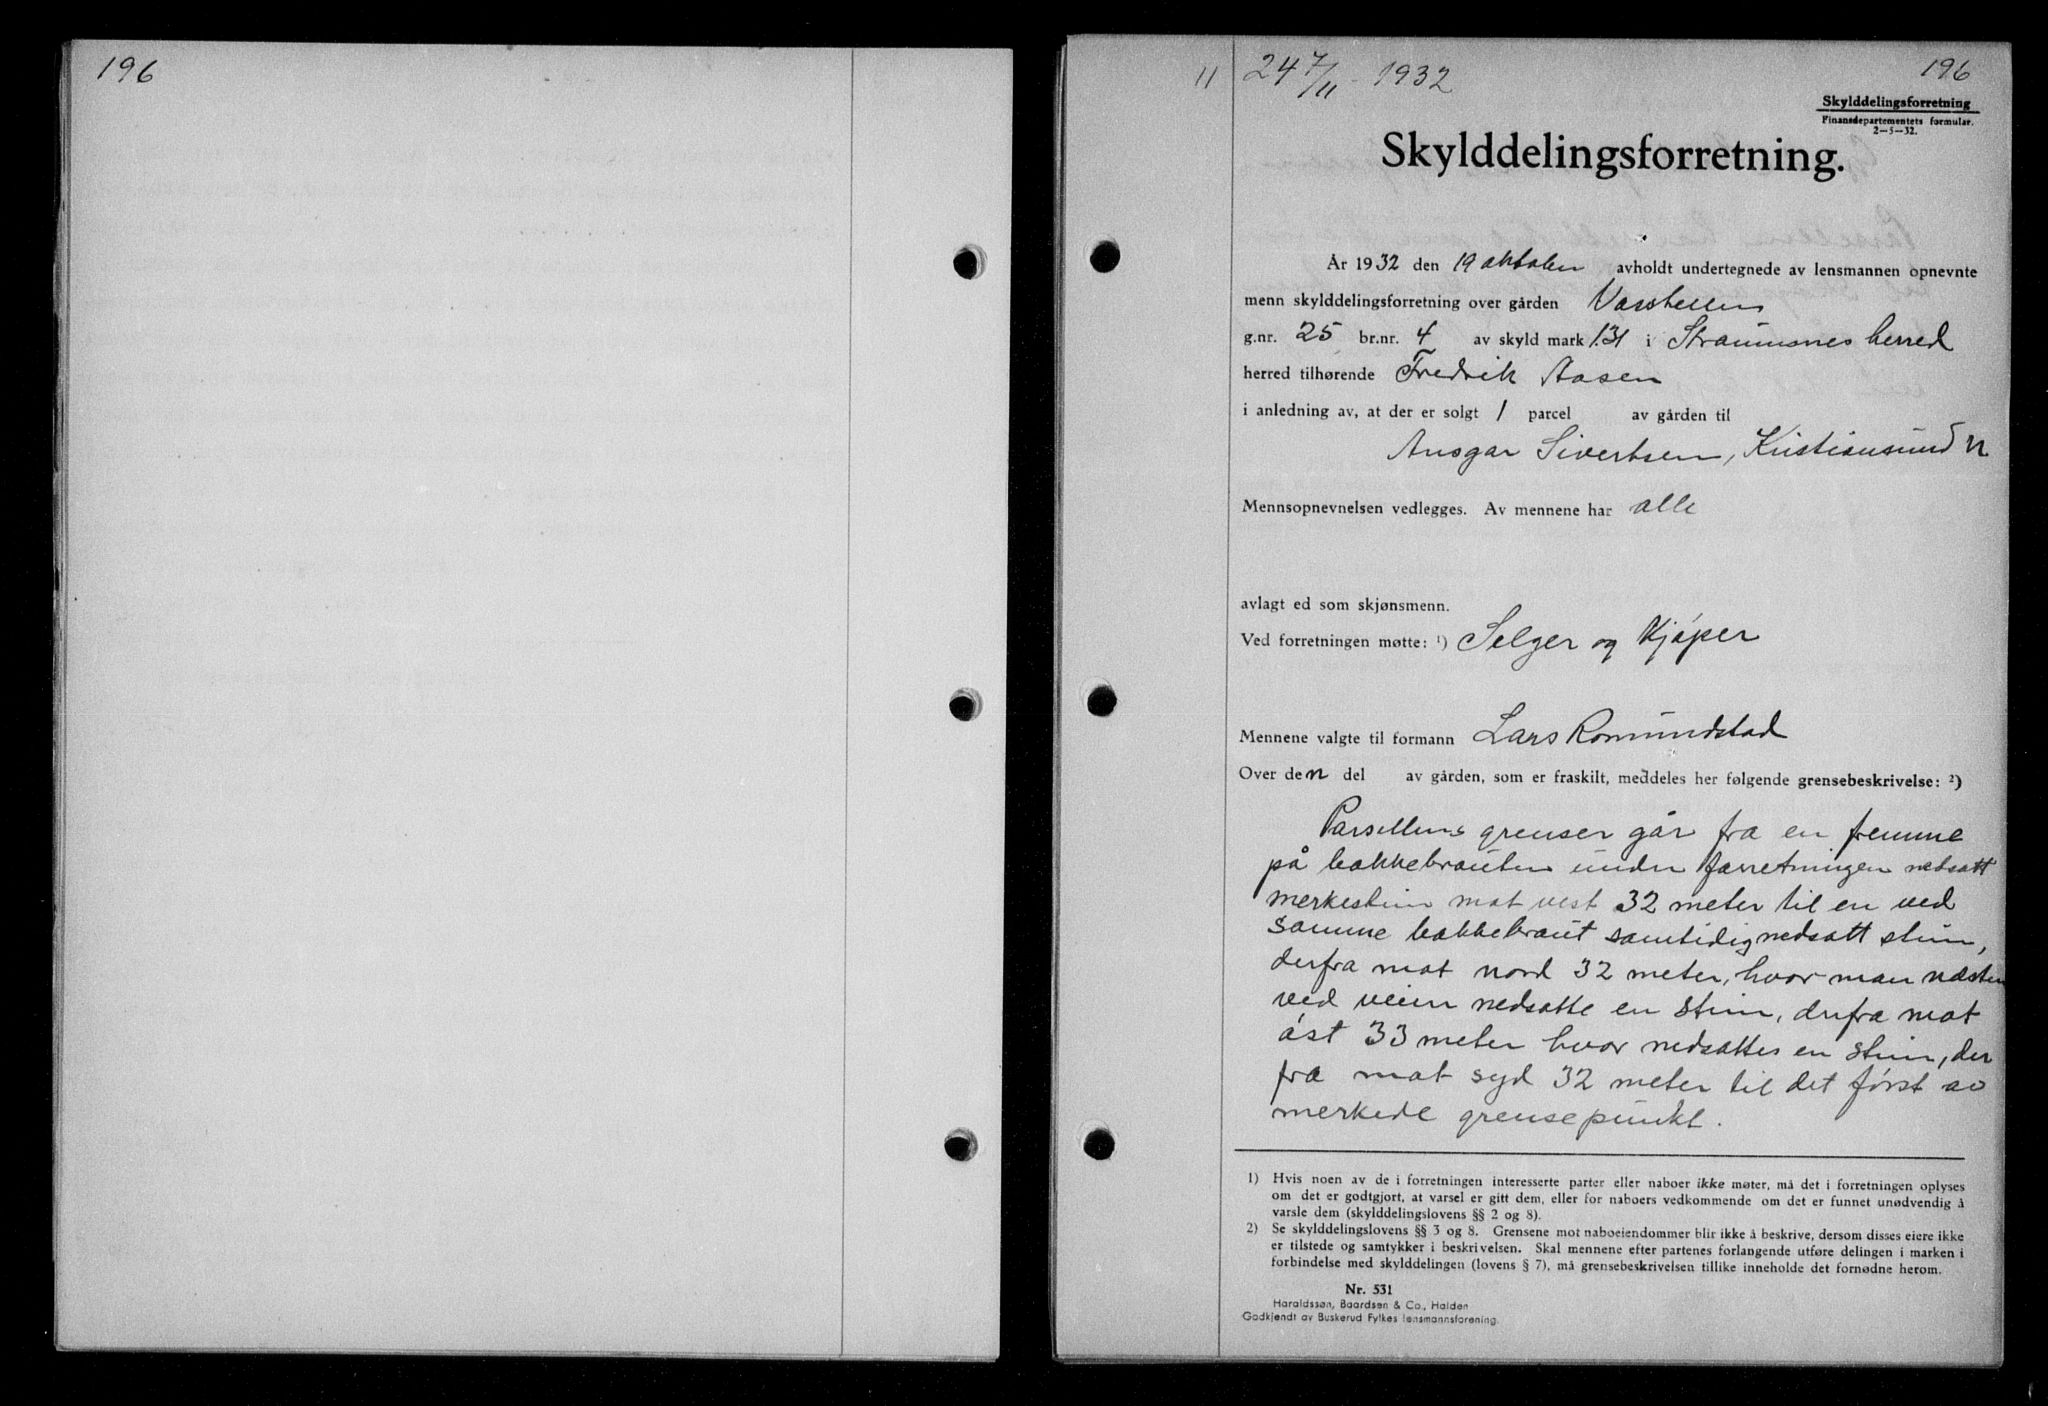 196
11 24 7/11 - 1932 196
Skylddelingsforretning
Finansdepartementets formular.
2—5—32.
Skylddelingsforretning.
År 1932 den 19 oktober avholdt undertegnede av lensmannen opnevnte
menn skylddelingsforretning over gården
g.nr. 25 br.nr. 4 av skyld mark 1.31 i Straumsnes herred
herred tilhørende Fredrik Aasen
i anledning av, at der er solgt 1 parcel av gården til
Ansgar Sivertsen, Kristiansund N
Mennsopnevnelsen vedlegges. Av mennene har alle
avlagt ed som skjønsmenn.
Ved forretningen møtte: ¹) Selger og Kjøper
Mennene valgte til formann Lars Romundstad
Over den del av gården, som er fraskilt, meddeles her følgende grensebeskrivelse: ²)
Parsellens grenser går fra en fremme
på bakkebrauten under forretningen nedsatt
merkestein mot vest 32 meter til en ved
samme bakkebraut samtidig nedsatt stein,
derfra mot nord 32 meter, hvor man næsten
ved veien nedsatte en stein, derfra mot
øst 33 meter hvor nedsattes en stein, der
fra mot syd 32 meter til det først av
merkede grensepunkt.
1) Hvis noen av de i forretningen interesserte parter eller naboer ikke møter, må det i forretningen oplyses
om det er godtgjort, at varsel er gitt dem, eller for naboers vedkommende om det er funnet unødvendig å
varsle dem (skylddelingslovens §§ 2 og 8).
2) Se skylddelingslovens §§ 3 og 8. Grensene mot naboeiendommer blir ikke å beskrive, dersom disses eiere ikke
er tilstede og samtykker i beskrivelsen. Skal mennene efter partenes forlangende utføre delingen i marken i
forbindelse med skylddelingen (lovens § 7), må grensebeskrivelsen tillike inneholde det fornødne herom.
Nr. 531
Haraldssøn, Baardsen & Co., Halden
Godkjendt av Buskerud Fylkes lensmannsforening.